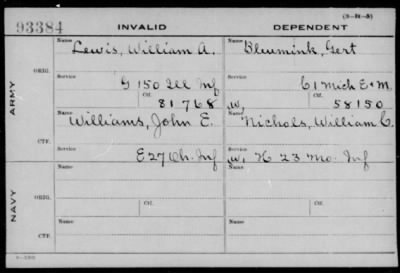 (3-31-5)
93384 INVALID DEPENDENT
Name Name
Lewis, William A. Blumink, Gert
ORIG. Service Service
G 150 Ill Inf C 1 Mich E & M
Ctf. Ctf.
81768 W, 58150
ARMY
Name Name
Williams, John E. Nichols, William C.
CTF. Service Service
E 27 Oh. Inf W, H 23 Mo. Inf
NAVY
Name Name
ORIG.
Ctf. Ctf.
Name Name
CTF.